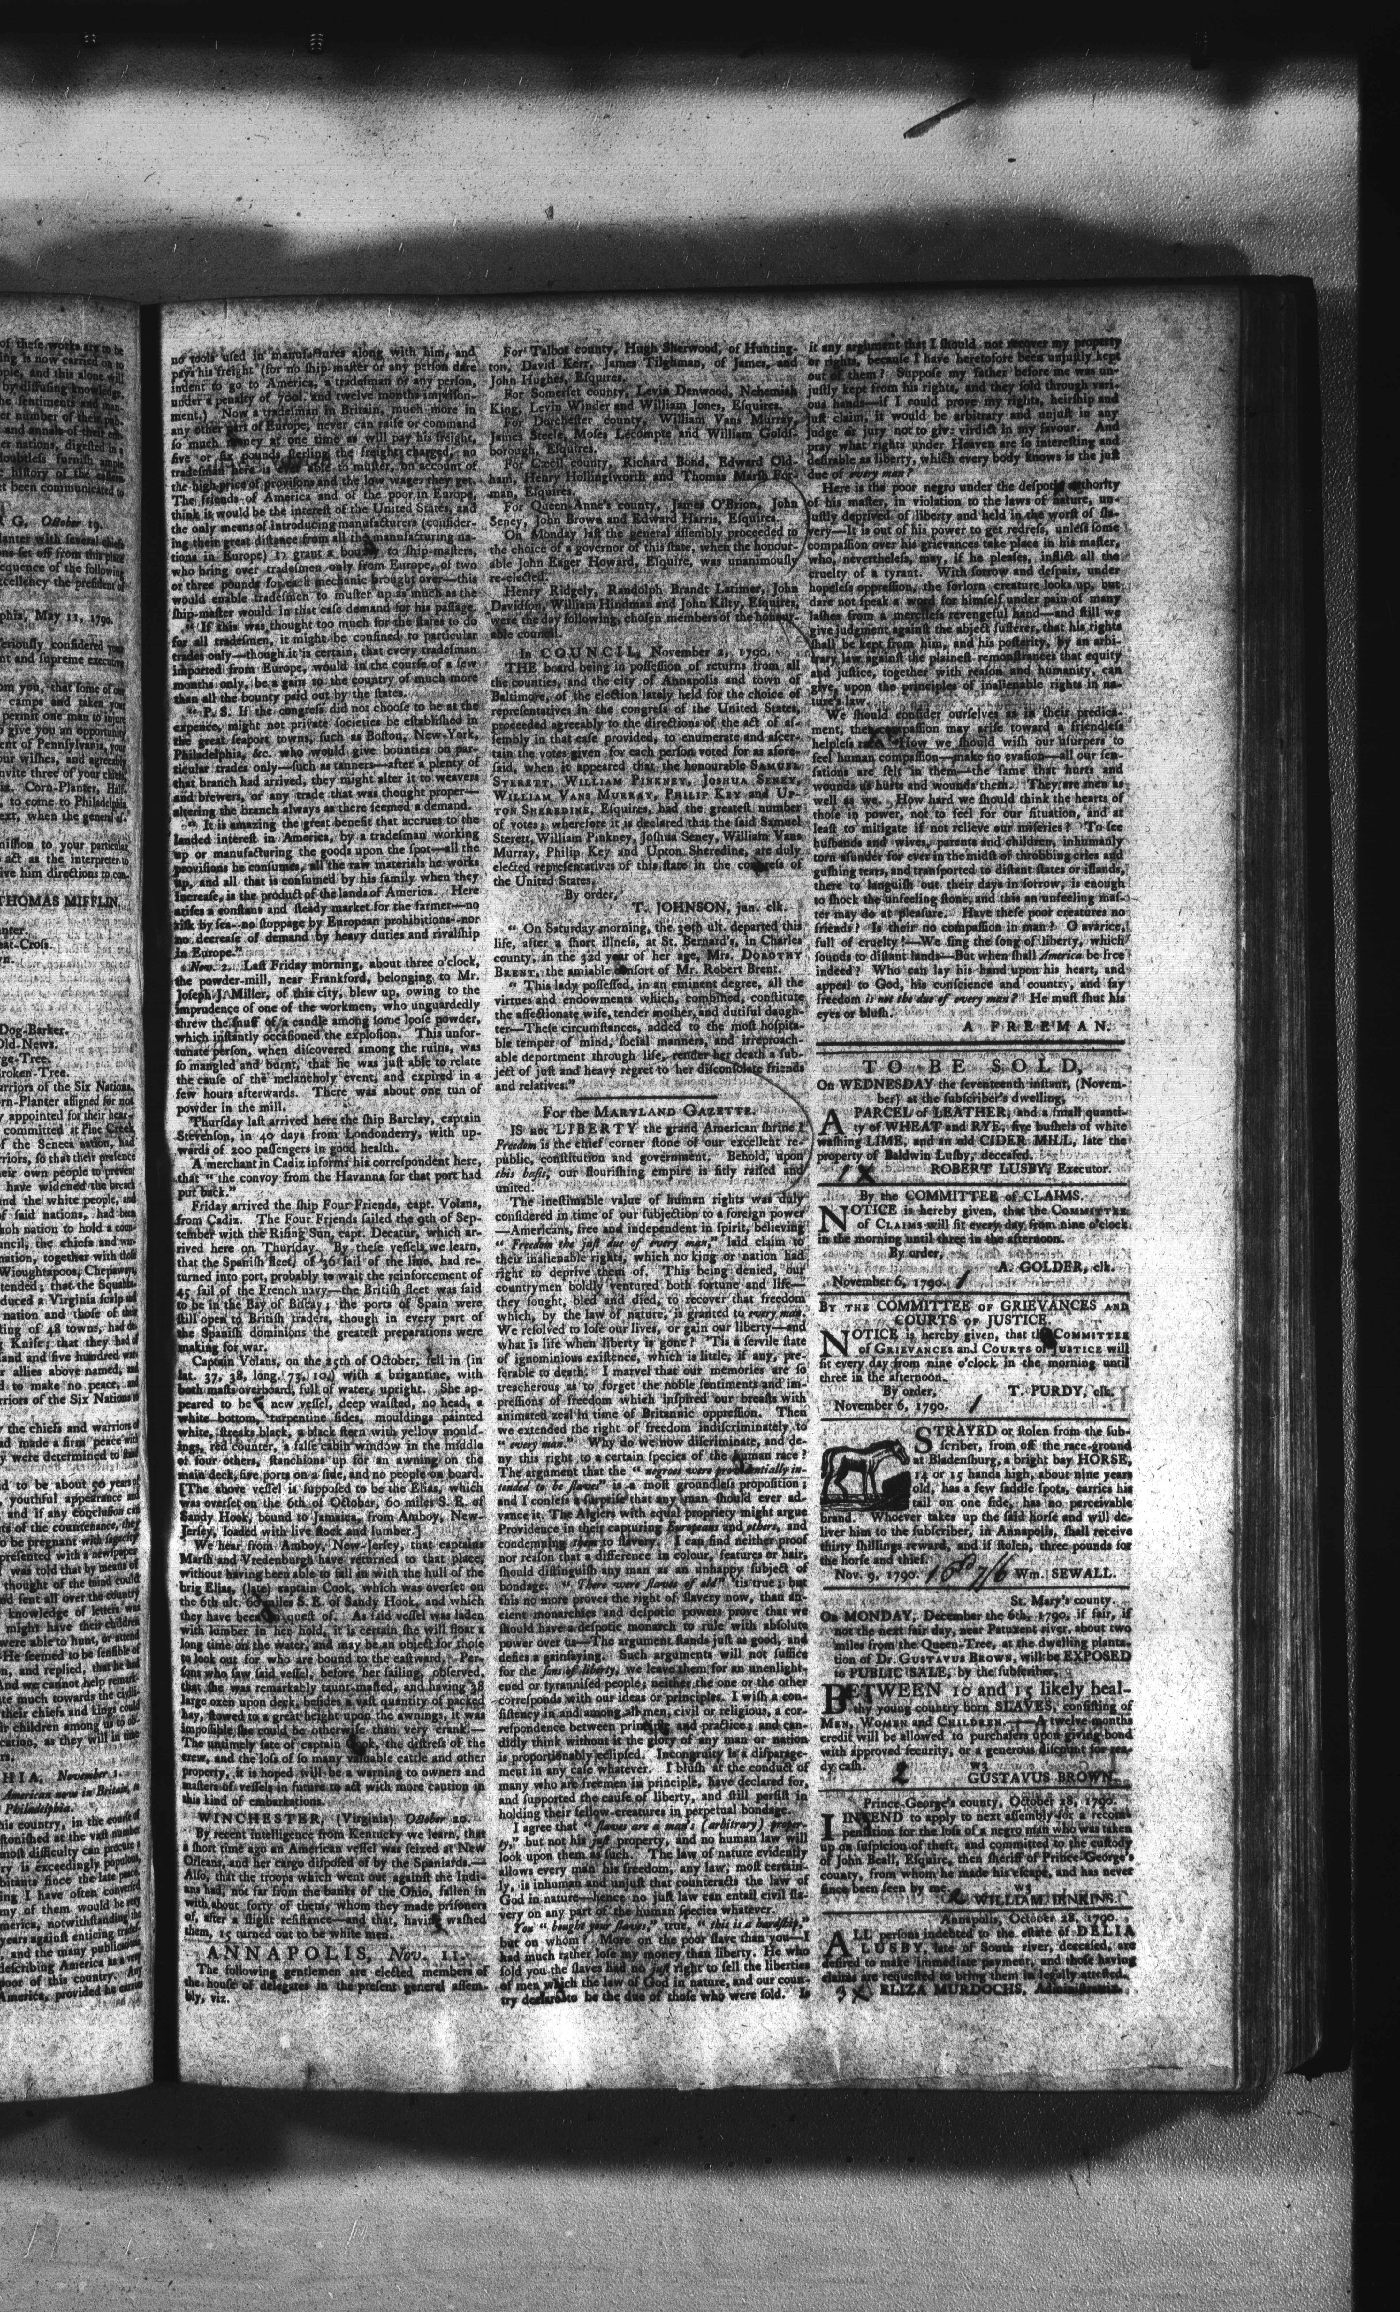 of these works are to be
ing is now carried on to
ople, and this alone will
by diffusing knowledge,
he sentiments and man-
er number of these pub-
and annals of their
er nations, digested in a
doubtless furnish ample
history of the
et been communicated to
G, October 19.
lanter with several chiefs
ons set off from this place
equence of the following
xcellency the president of
phia, May 11, 1790.
eriously considered your
nt and supreme executive
om you, that some of our
camps and taken your
permit one man to injure
to give you an opportunity
ent of Pennsylvania, your
our wishes, and agreeably
nvite three of your chiefs,
ia, Corn-Planter, Half-
to come to Philadelphia
ext, when the general
mission to your particular
act as the interpreter to
ive him directions to con-
THOMAS MIFFLIN.
anter.
eat-Cross.
Dog-Barker.
Old-News.
rge-Tree.
roken-Tree.
arriors of the Six Nations,
rn-Planter assigned for not
appointed for their hear-
committed at Pine Creek
f the Seneca nation, had
riors, so that their presence
eir own people to prevent
have widened the breach
nd the white people, and
f said nations, had been
noh nation to hold a coun-
ncil, the chiefs and war-
nation, together with those
Wioughtapoos, Chepaways,
tended; that the Squash-
duced a Virginia scalp of
nation and those of this
ting of 48 towns, had de-
Knife; that they had of
land and five hundred war-
allies above named, and
d to make no peace, and
rriors of the Six Nations
the chiefs and warriors of
ad made a firm peace with
y were determined to
d to be about 50 years of
youthful appearance and
and if any conclusion can
ts of the countenance, they
o be pregnant with sagacity
presented with a newspaper
was told that by means of
thought of the mind could
ed sent all over the country
knowledge of letters was
might have their children
were able to hunt, or attend
He seemed to be sensible of
n, and replied, that he had
And we cannot help remark-
te much towards the
their chiefs and kings could
ir children among us to
cation, as they will in time
rs.
HIA, November 1.
American now in Britain, to
Philadelphia.
his country, in the course of
stonished at the vast number
most difficulty can procure a
ry is exceedingly populous,
bitants since the late peace
ing I have often conversed
ny of them would be very
merica, notwithstanding the
years against enticing
, and the many publications
describing America as a very
poor of this country. Any
America, provided he carries
no tools used in manufactures along with him, and
pays his freight (for no ship-master or any person dare
indent to go to America, a tradesman or any person,
under a penalty of 700l. and twelve months imprison-
ment.) Now a tradesman in Britain, much more in
any other part of Europe, never can raise or command
so much money at one time as will pay his freight,
five or six pounds sterling the freight charged, no
tradesman here is ever able to muster, on account of
the high price of provisions and the low wages they get.
The friends of America and of the poor in Europe,
think it would be the interest of the United States, and
the only means of introducing manufactures (consider-
ing their great distance from all the manufacturing na-
tions in Europe) to grant a bounty to ship-masters,
who bring over tradesmen only from Europe, of two
or three pounds for each mechanic brought over—this
would enable tradesmen to muster up as much as the
ship-master would in that case demand for his passage.
" If this was thought too much for the states to do
for all tradesmen, it might be confined to particular
trades only—though it is certain, that every tradesman
imported from Europe, would in the course of a few
months only, be a gain to the country of much more
than all the bounty paid out by the states.
" P. S. If the congress did not choose to be at the
expence, might not private societies be established in
the great seaport towns, such as Boston, New-York,
Philadelphia, &c. who would give bounties on par-
ticular trades only—such as tanners—after a plenty of
that branch had arrived, they might alter it to weavers
and brewers, or any trade that was thought proper—
altering the branch always as there seemed a demand.
" It is amazing the great benefit that accrues to the
landed interest in America, by a tradesman working
up or manufacturing the goods upon the spot—all the
provisions he consumes, all the raw materials he works
up, and all that is consumed by his family when they
increase, is the product of the lands of America. Here
arises a constant and steady market for the farmer—no
risk by sea—no stoppage by European prohibitions—nor
no decrease of demand by heavy duties and rivalship
in Europe."
Nov. 2. Last Friday morning, about three o'clock,
the powder-mill, near Frankford, belonging to Mr.
Joseph J. Miller, of this city, blew up, owing to the
imprudence of one of the workmen, who unguardedly
threw the snuff of a candle among some loose powder,
which instantly occasioned the explosion. This unfor-
tunate person, when discovered among the ruins, was
so mangled and burnt, that he was just able to relate
the cause of the melancholy event, and expired in a
few hours afterwards. There was about one tun of
powder in the mill.
Thursday last arrived here the ship Barclay, captain
Stevenson, in 40 days from Londonderry, with up-
wards of 200 passengers in good health.
A merchant in Cadiz informs his correspondent here,
that " the convoy from the Havanna for that port had
put back."
Friday arrived the ship Four Friends, capt. Volans,
from Cadiz. The Four Friends sailed the 9th of Sep-
tember with the Rising Sun, capt. Decatur, which ar-
rived here on Thursday. By these vessels we learn,
that the Spanish fleet, of 36 sail of the line, had re-
turned into port, probably to wait the reinforcement of
45 sail of the French navy—the British fleet was said
to be in the Bay of Biscay; the ports of Spain were
still open to British traders, though in every part of
the Spanish dominions the greatest preparations were
making for war.
Captain Volans, on the 25th of October, fell in (in
lat. 37, 38, long. 73, 10,) with a brigantine, with
both masts overboard, full of water, upright. She ap-
peared to be a new vessel, deep waisted, no head, a
white bottom, turpentine sides, mouldings painted
white, streaks black, a black stern with yellow mould-
ings, red counter, a false cabin window in the middle
of four others, stanchions up for an awning on the
main deck, five ports on a side, and no people on board.
[The above vessel is supposed to be the Elias, which
was overset on the 6th of October, 60 miles S. E. of
Sandy Hook, bound to Jamaica, from Amboy, New-
Jersey, loaded with live stock and lumber.]
We hear from Amboy, New-Jersey, that captains
Marsh and Vredenburgh have returned to that place,
without having been able to fall in with the hull of the
brig Elias, (late) captain Cook, which was overset on
the 6th ult. 60 miles S. E. of Sandy Hook, and which
they have been in quest of. As said vessel was laden
with lumber in her hold, it is certain she will float a
long time on the water, and may be an object for those
to look out for who are bound to the eastward. Per-
sons who saw said vessel, before her sailing, observed,
that she was remarkably taunt-masted, and having 38
large oxen upon deck, besides a vast quantity of packed
hay, stowed to a great height upon the awnings, it was
impossible she could be otherwise than very crank.—
The untimely fate of captain Cook, the distress of the
crew, and the loss of so many valuable cattle and other
property, it is hoped will be a warning to owners and
masters of vessels in future to act with more caution in
this kind of embarkations.
WINCHESTER, (Virginia) October 20.
By recent intelligence from Kentucky we learn, that
a short time ago an American vessel was seized at New
Orleans, and her cargo disposed of by the Spaniards.—
Also, that the troops which went out against the Indi-
ans had, not far from the banks of the Ohio, fallen in
with about forty of them, whom they made prisoners
of, after a slight resistance—and that, having washed
them, 15 turned out to be white men.
ANNAPOLIS, Nov. 11.
The following gentlemen are elected members of
the house of delegates in the present general assem-
bly, viz.
For Talbot county, Hugh Sherwood, of Hunting-
ton, David Kerr, James Tilghman, of James, and
John Hughes, Esquires.
For Somerset county, Levin Denwood, Nehemiah
King, Levin Winder and William Jones, Esquires.
For Dorchester county, William Vans Murray,
James Steele, Moses Lecompte and William Golds-
borough, Esquires.
For Cæcil county, Richard Bond, Edward Old-
ham, Henry Hollingsworth and Thomas Marsh For-
man, Esquires.
For Queen-Anne's county, James O'Brion, John
Seney, John Brown and Edward Harris, Esquires.
On Monday last the general assembly proceeded to
the choice of a governor of this state, when the honour-
able John Eager Howard, Esquire, was unanimously
re-elected.
Henry Ridgely, Randolph Brandt Latimer, John
Davidson, William Hindman and John Kilty, Esquires,
were the day following, chosen members of the honour-
able council.
In COUNCIL, November 2, 1790.
THE board being in possession of returns from all
the counties, and the city of Annapolis and town of
Baltimore, of the election lately held for the choice of
representatives in the congress of the United States,
proceeded agreeably to the directions of the act of as-
sembly in that case provided, to enumerate and ascer-
tain the votes given for each person voted for as afore-
said, when it appeared that the honourable SAMUEL
STERETT, WILLIAM PINKNEY, JOSHUA SENEY,
WILLIAM VANS MURRAY, PHILIP KEY and UP-
TON SHEREDINE, Esquires, had the greatest number
of votes; wherefore it is declared that the said Samuel
Sterett, William Pinkney, Joshua Seney, William Vans
Murray, Philip Key and Upton Sheredine, are duly
elected representatives of this state in the congress of
the United States.
By order,
T. JOHNSON, jun. clk.
" On Saturday morning, the 30th ult. departed this
life, after a short illness, at St. Bernard's, in Charles
county, in the 32d year of her age, Mrs. DOROTHY
BRENT, the amiable consort of Mr. Robert Brent.
" This lady possessed, in an eminent degree, all the
virtues and endowments which, combined, constitute
the affectionate wife, tender mother, and dutiful daugh-
ter—These circumstances, added to the most hospita-
ble temper of mind, social manners, and irreproach-
able deportment through life, render her death a sub-
ject of just and heavy regret to her disconsolate friends
and relatives."
For the MARYLAND GAZETTE.
IS not LIBERTY the grand American shrine?
Freedom is the chief corner stone of our excellent re-
public, constitution and government. Behold, upon
this basis, our flourishing empire is fitly raised and
united.
The inestimable value of human rights was duly
considered in time of our subjection to a foreign power
—Americans, free and independent in spirit, believing
" Freedom the just due of every man," laid claim to
their inalienable rights, which no king or nation had
right to deprive them of. This being denied, our
countrymen boldly ventured both fortune and life—
they sought, bled and died, to recover that freedom
which, by the law of nature, is granted to every man.
We resolved to lose our lives, or gain our liberty—and
what is life when liberty is gone? 'Tis a servile state
of ignominious existence, which is little, if any, pre-
ferable to death. I marvel that our memories are so
treacherous as to forget the noble sentiments and im-
pressions of freedom which inspired our breasts with
animated zeal in time of Britannic oppression. Then
we extended the right of freedom indiscriminately to
" every man." Why do we now discriminate, and de-
ny this right to a certain species of the human race?
The argument that the " negroes were providentially in-
tended to be slaves" is a most groundless proposition;
and I confess a surprise that any man should ever ad-
vance it. The Algiers with equal propriety might argue
Providence in their capturing Europeans and others, and
condemning them to slavery. I can find neither proof
nor reason that a difference in colour, features or hair,
should distinguish any man as an unhappy subject of
bondage. " There were slaves of old" 'tis true; but
this no more proves the right of slavery now, than an-
cient monarchies and despotic powers prove that we
should have a despotic monarch to rule with absolute
power over us—The argument stands just as good, and
defies a gainsaying. Such arguments will not suffice
for the sons of liberty, we leave them for an unenlight-
ened or tyrannised people; neither the one or the other
corresponds with our ideas or principles. I wish a con-
sistency in and among all men, civil or religious, a cor-
respondence between principle and practice; and can-
didly think without it the glory of any man or nation
is proportionably eclipsed. Incongruity is a disparage-
ment in any case whatever. I blush at the conduct of
many who are freemen in principle, have declared for,
and supported the cause of liberty, and still persist in
holding their fellow-creatures in perpetual bondage.
I agree that " slaves are a man's (arbitrary) proper-
ty," but not his just property, and no human law will
look upon them as such. The law of nature evidently
allows every man his freedom, any law, most certain-
ly, is inhuman and unjust that counteracts the law of
God in nature—hence no just law can entail civil sla-
very on any part of the human species whatever.
You " bought your slaves," true, " this is a hardship,"
but on whom? More on the poor slave than you—I
had much rather lose my money than liberty. He who
sold you the slaves had no just right to sell the liberties
of men which the law of God in nature, and our coun-
try declare to be the due of those who were sold. Is
it any argument that I should not recover my property
or rights, because I have heretofore been unjustly kept
out of them? Suppose my father before me was un-
justly kept from his rights, and they sold through vari-
ous hands—if I could prove my rights, heirship and
just claim, it would be arbitrary and unjust in any
judge or jury not to give virdict in my favour. And
pray what rights under Heaven are so interesting and
desirable as liberty, which every body knows is the just
due of every man?
Here is the poor negro under the despotic authority
of his master, in violation to the laws of nature, un-
justly deprived of liberty and held in the worst of sla-
very—It is out of his power to get redress, unless some
compassion over his grievances take place in his master,
who, nevertheless, may, if he pleases, inflict all the
cruelty of a tyrant. With sorrow and despair, under
hopeless oppression, the forlorn creature looks up, but
dare not speak a word for himself under pain of many
lashes from a merciless revengeful hand—and still we
give judgment against the abject sufferer, that his rights
shall be kept from him, and his posterity, by an arbi-
trary law against the plainest remonstrances that equity
and justice, together with reason and humanity, can
give, upon the principles of inalienable rights in na-
ture's law.
We should consider ourselves as in their predica-
ment, then compassion may arise toward a friendless
helpless race. How we should wish our usurpers to
feel human compassion—make no evasion—all our sen-
sations are felt in them—the same that hurts and
wounds us hurts and wounds them. They are men as
well as we. How hard we should think the hearts of
those in power, not to feel for our situation, and at
least to mitigate if not relieve our miseries? To see
husbands and wives, parents and children, inhumanly
torn asunder for ever in the midst of throbbing cries and
gushing tears, and transported to distant states or islands,
there to languish out their days in sorrow, is enough
to shock the unfeeling stone, and this an unfeeling mas-
ter may do at pleasure. Have these poor creatures no
friends? Is their no compassion in man? O avarice,
full of cruelty!—We sing the song of liberty, which
sounds to distant lands—But when shall America be free
indeed? Who can lay his hand upon his heart, and
appeal to God, his conscience and country, and say
freedom is not the due of every man? He must shut his
eyes or blush.
A FREEMAN.
TO BE SOLD,
On WEDNESDAY the seventeenth instant, (Novem-
ber) at the subscriber's dwelling,
A PARCEL of LEATHER, and a small quanti-
ty of WHEAT and RYE, five bushels of white
washing LIME, and an old CIDER MILL, late the
property of Baldwin Lusby, deceased.
1 X ROBERT LUSBY, Executor.
By the COMMITTEE of CLAIMS.
NOTICE is hereby given, that the COMMITTEE
of CLAIMS will sit every day, from nine o'clock
in the morning until three in the afternoon.
By order,
A. GOLDER, clk.
November 6, 1790. 1
BY THE COMMITTEE OF GRIEVANCES AND
COURTS OF JUSTICE.
NOTICE is hereby given, that the COMMITTEE
of GRIEVANCES and COURTS of JUSTICE will
sit every day from nine o'clock in the morning until
three in the afternoon.
By order, T. PURDY, clk.
November 6, 1790. 1
STRAYED or stolen from the sub-
scriber, from off the race-ground
at Bladensburg, a bright bay HORSE,
14 or 15 hands high, about nine years
old, has a few saddle spots, carries his
tail on one side, has no perceivable
brand. Whoever takes up the said horse and will de-
liver him to the subscriber, in Annapolis, shall receive
thirty shillings reward, and if stolen, three pounds for
the horse and thief.
Nov. 9, 1790. 7/6 Wm. SEWALL.
St. Mary's county.
On MONDAY, December the 6th, 1790, if fair, if
not the next fair day, near Patuxent river, about two
miles from the Queen-Tree, at the dwelling planta-
tion of Dr. GUSTAVUS BROWN, will be EXPOSED
to PUBLIC SALE, by the subscriber,
BETWEEN 10 and 15 likely heal-
thy young country born SLAVES, consisting of
MEN, WOMEN and CHILDREN.—A twelve months
credit will be allowed to purchasers upon giving bond
with approved security, or a generous discount for rea-
dy cash. 2 w3
GUSTAVUS BROWN.
Prince-George's county, October 28, 1790.
I INTEND to apply to next assembly for a recom-
pensation for the loss of a negro man who was taken
up on suspicion of theft, and committed to the custody
of John Beall, Esquire, then sheriff of Prince-George's
county, from whom he made his escape, and has never
since been seen by me. w3
2 WILLIAM JENKINS.
Annapolis, October 28, 1790.
ALL persons indebted to the estate of DELIA
LUSBY, late of South river, deceased, are
desired to make immediate payment, and those having
claims are requested to bring them in legally attested.
3 X ELIZA MURDOCHS, Administratrix.